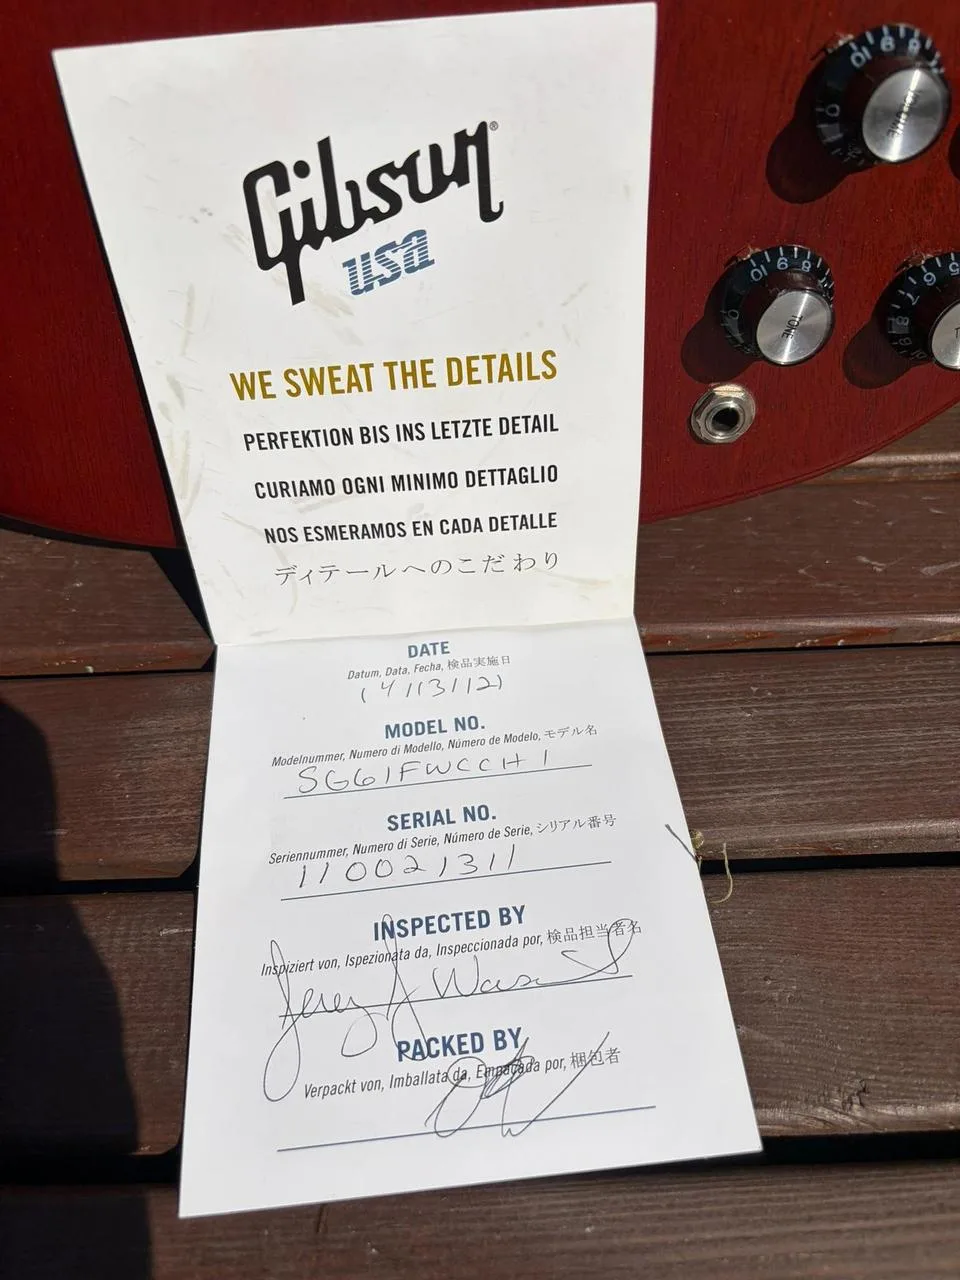 Gibson®
USA
WE SWEAT THE DETAILS
PERFEKTION BIS INS LETZTE DETAIL
CURIAMO OGNI MINIMO DETTAGLIO
NOS ESMERAMOS EN CADA DETALLE
ディテールへのこだわり
DATE
Datum, Data, Fecha, 検品実施日
(4/13/12)
MODEL NO.
Modelnummer, Numero di Modello, Número de Modelo, モデル名
SG61FWCCH1
SERIAL NO.
Seriennummer, Numero di Serie, Número de Serie, シリアル番号
110021311
INSPECTED BY
Inspiziert von, Ispezionata da, Inspeccionada por, 検品担当者名
PACKED BY
Verpackt von, Imballata da, Empacada por, 梱包者
VOLUME
TONE